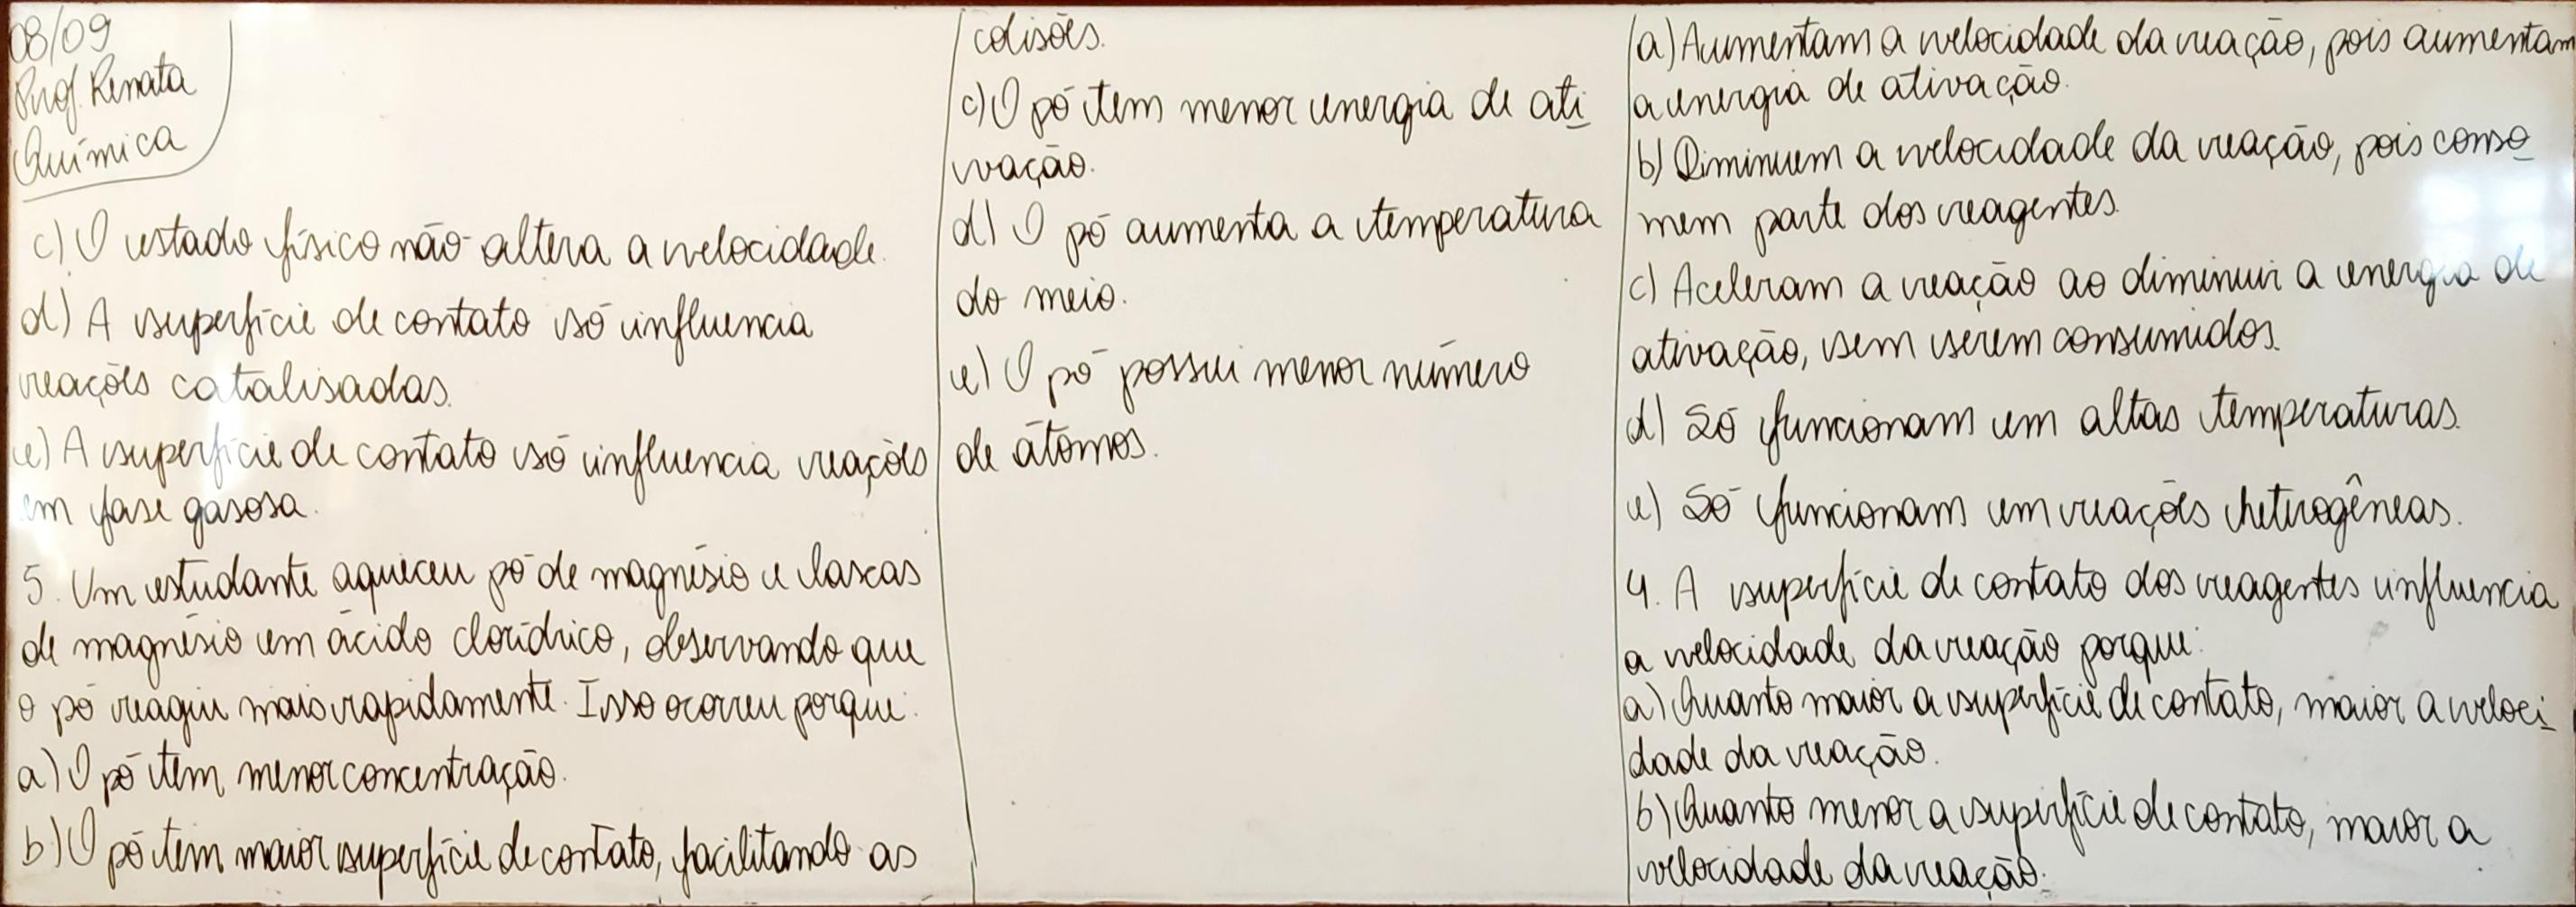 08/09
Prof. Renata
Química
c) O estado físico não altera a velocidade.
d) A superfície de contato só influencia
reações catalisadas.
e) A superfície de contato só influencia reações
em fase gasosa.
5. Um estudante aqueceu pó de magnésio e lascas
de magnésio em ácido clorídrico, observando que
o pó reagiu mais rapidamente. Isso ocorreu porque:
a) O pó tem menor concentração.
b) O pó tem maior superfície de contato, facilitando as
colisões.
c) O pó tem menor energia de ati
vação.
d) O pó aumenta a temperatura
do meio.
e) O pó possui menor número
de átomos.
a) Aumentam a velocidade da reação, pois aumentam
a energia de ativação.
b) Diminuem a velocidade da reação, pois conso
mem parte dos reagentes.
c) Aceleram a reação ao diminuir a energia de
ativação, sem serem consumidos.
d) Só funcionam em altas temperaturas.
e) Só funcionam em reações heterogêneas.
4. A superfície de contato dos reagentes influencia
a velocidade da reação porque:
a) Quanto maior a superfície de contato, maior a veloci
dade da reação.
b) Quanto menor a superfície de contato, maior a
velocidade da reação.